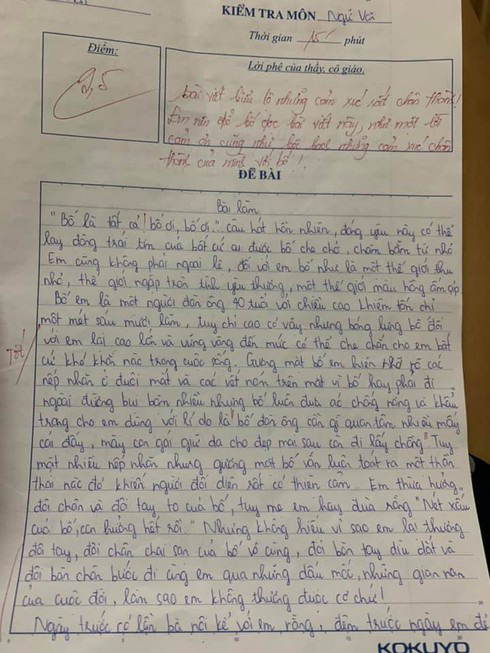 KIỂM TRA MÔN Ngữ Văn
Thời gian 15' phút
Điểm:
9,5
Lời phê của thầy, cô giáo.
bài viết bộc lộ những cảm xúc rất chân thành!
Em nên để bố đọc bài viết này, như một lời
cảm ơn cũng như bộc bạch những cảm xúc chân
thành của mình với bố!
ĐỀ BÀI
Bài làm
"Bố là tất cả! bố ơi, bố ơi" câu hát hồn nhiên, đáng yêu này có thể
lay động trái tim của bất cứ ai được bố che chở, chăm bẵm từ nhỏ
Em cũng không phải ngoại lệ, đối với em bố như là một thế giới thu
nhỏ, thế giới ngập tràn tình yêu thương, một thế giới màu hồng ấm áp
Bố em là một người đàn ông 40 tuổi với chiều cao khiêm tốn chỉ
một mét sáu mươi lăm, tuy chỉ cao có vậy nhưng bóng lưng bố đối
Tốt!
với em lại cao lớn và vững vàng đến mức có thể che chắn cho em bất
cứ khó khăn nào trong cuộc sống. Gương mặt bố em hiện rõ các
nếp nhăn ở đuôi mắt và các vết nám trên mặt vì bố hay phải đi
ngoài đường bụi bặm nhiều nhưng bố luôn đưa áo chống nắng và khẩu
trang cho em dùng với lí do là "bố đàn ông cần gì quan tâm nhiều mấy
cái đấy, mày con gái giữ da cho đẹp mai sau còn đi lấy chồng" Tuy
mặt nhiều nếp nhăn nhưng gương mặt bố vẫn luôn toát ra một thần
thái nào đó khiến người đối diện rất có thiện cảm. Em thừa hưởng
đôi chân và đôi tay to của bố, tuy mẹ em hay đùa rằng "Nét xấu
của bố, con hưởng hết rồi." Nhưng không hiểu vì sao em lại thương
đôi tay, đôi chân chai sạn của bố vô cùng, đôi bàn tay dìu dắt và
đôi bàn chân bước đi cùng em qua những dấu mốc, những gian nan
của cuộc đời, làm sao em không thương được cơ chứ!
Ngày trước có lần bà nội kể với em rằng, đêm trước ngày em đi
KOKUYO